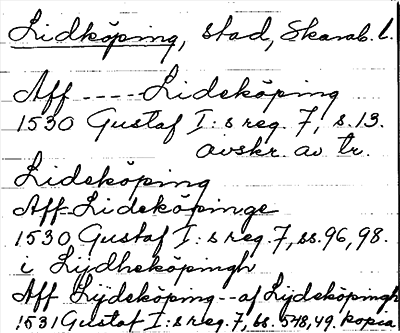 Lidköping, stad, Skarab. l.
Aff ---- Lideköping
1530 Gustaf I:s reg. 7, s. 13.
avskr. av tr.
Lideköping
Aff Lideköpinge
1530 Gustaf I:s reg. 7, ss. 96, 98.
i Lydheköpingh
Aff Lydeköping -- af Lydeköpingh
1531 Gustaf I:s reg. 7, ss. 548, 49. kopia